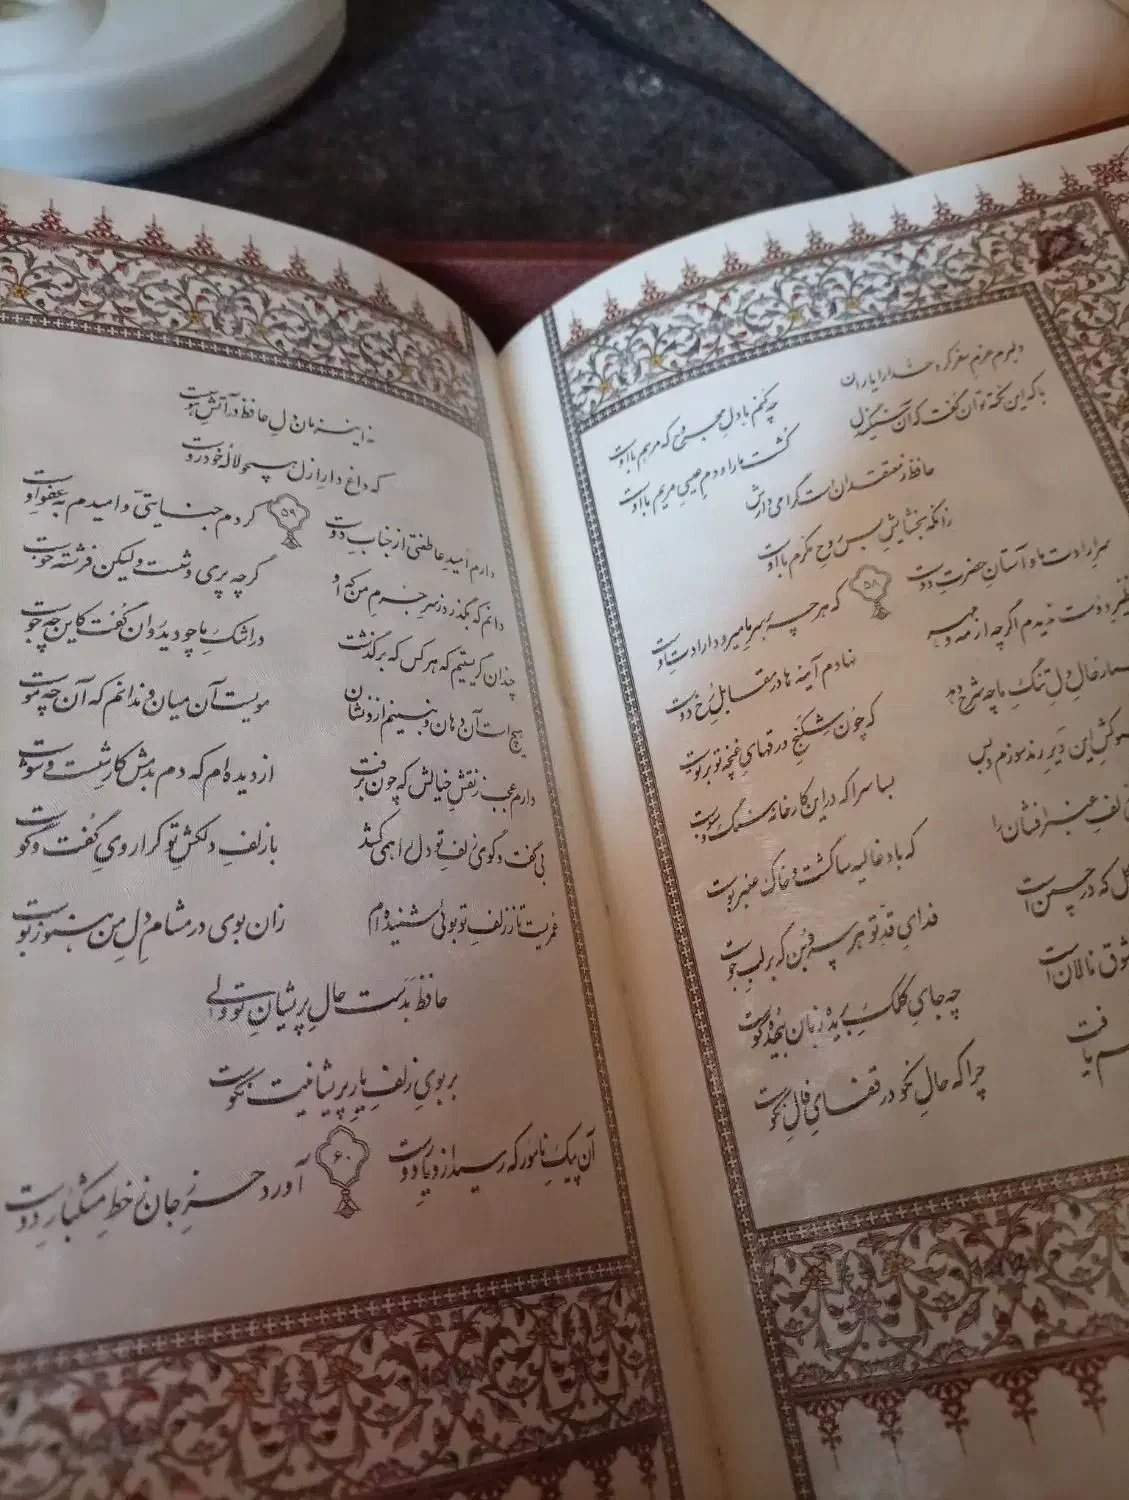 دلبرم عزم سفر کرد خدا را یاران
چه کنم با دل مجروح که مرهم با اوست
با که این نکته توان گفت که آن سنگین دل
کشت ما را و دم عیسی مریم با اوست
حافظ از معتقدان است گرامی دارش
زانکه بخشایش بس روح مکرم با اوست
۵۸
سر ارادت ما و آستان حضرت دوست
که هر چه بر سر ما میرود ارادت اوست
نظیر دوست ندیدم اگر چه از مه و مهر
نهادم آینه ها در مقابل رخ دوست
حال دل تنگ ما چه شرح دهد
که چون شکنج ورقهای غنچه تو بر توست
این دیر رند سوزم و بس
بسا سرا که در این کارخانه سنگ و سبوست
زلف عنبرافشان را
که باد غالیه سا گشت و خاک عنبر بوست
گل که در چمن است
فدای قد تو هر سرو بن که بر لب جوست
شوق نالان است
چه جای کلک بریده زبان بیهده گوست
یافت
چرا که حال نکو در قفای فال نکوست
نه این زمان دل حافظ در آتش هوست
که داغ دار ازل همچو لاله خودروست
۵۹
دارم امید عاطفتی از جناب دوست
کردم جنایتی و امیدم به عفو اوست
دانم که بگذرد ز سر جرم من که او
گر چه پریوشست ولیکن فرشته خوست
چندان گریستیم که هر کس که برگذشت
در اشک ما چو دید روان گفت کاین چه جوست
هیچ است آن دهان و نبینم ازو نشان
مویست آن میان و ندانم که آن چه موست
دارم عجب ز نقش خیالش که چون نرفت
از دیده ام که دم بدمش کار شست و شوست
بی گفت و گوی زلف تو دل را همی کشد
با زلف دلکش تو کرا روی گفت و گوست
عمریست تا ز زلف تو بوئی شنیده ام
زان بوی در مشام دل من هنوز بوست
حافظ بدست حال پریشان تو ولی
بر بوی زلف یار پریشانیت نکوست
۶۰
آن پیک نامور که رسید از دیار دوست
آورد حرز جان ز خط مشکبار دوست